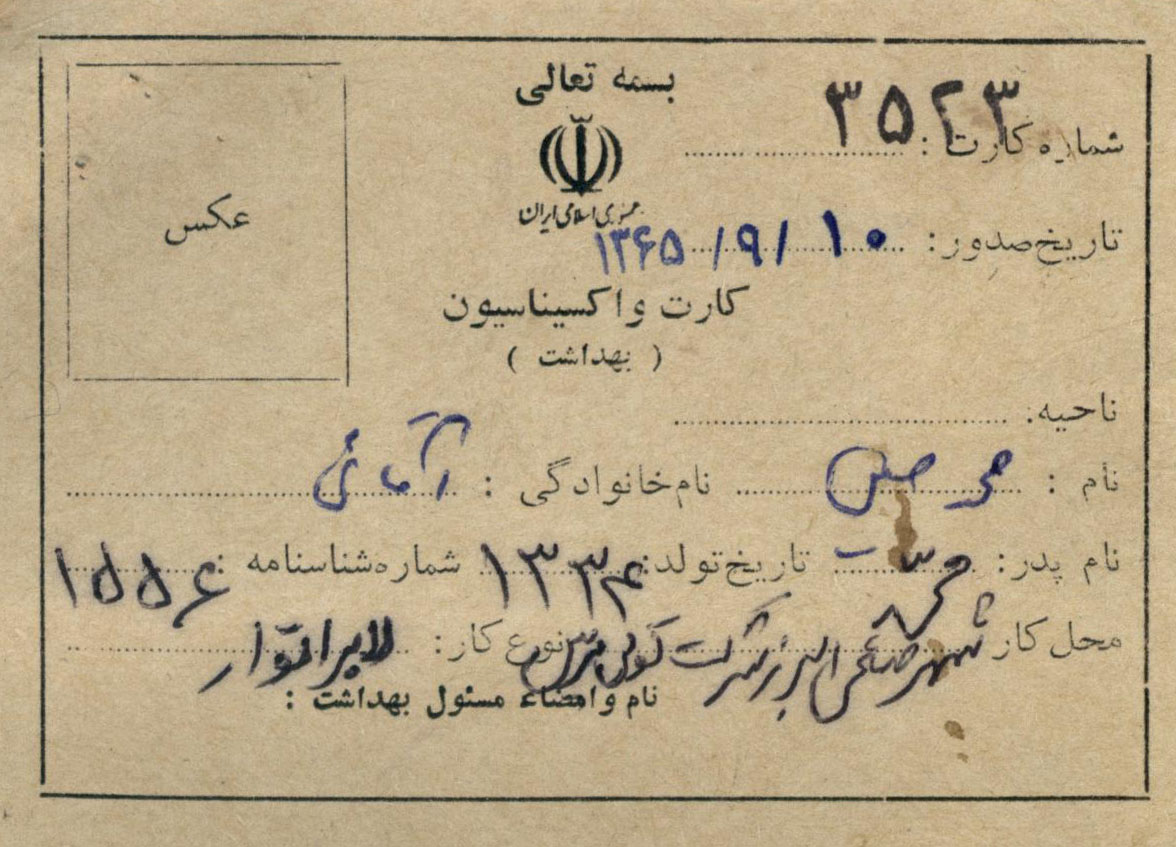 بسمه تعالی
شماره کارت: ۳۵۲۳
جمهوری اسلامی ایران
تاریخ صدور: ۱۰ / ۹ / ۱۳۶۵
عکس
کارت واکسیناسیون
( بهداشت )
ناحیه:
نام : نام خانوادگی :
نام پدر: تاریخ تولد: ۱۳۳۴ شماره شناسنامه : ۱۵۵۶
محل کار شهر صنعتی البرز شرکت نوع کار: لابراتوار
نام و امضاء مسئول بهداشت :